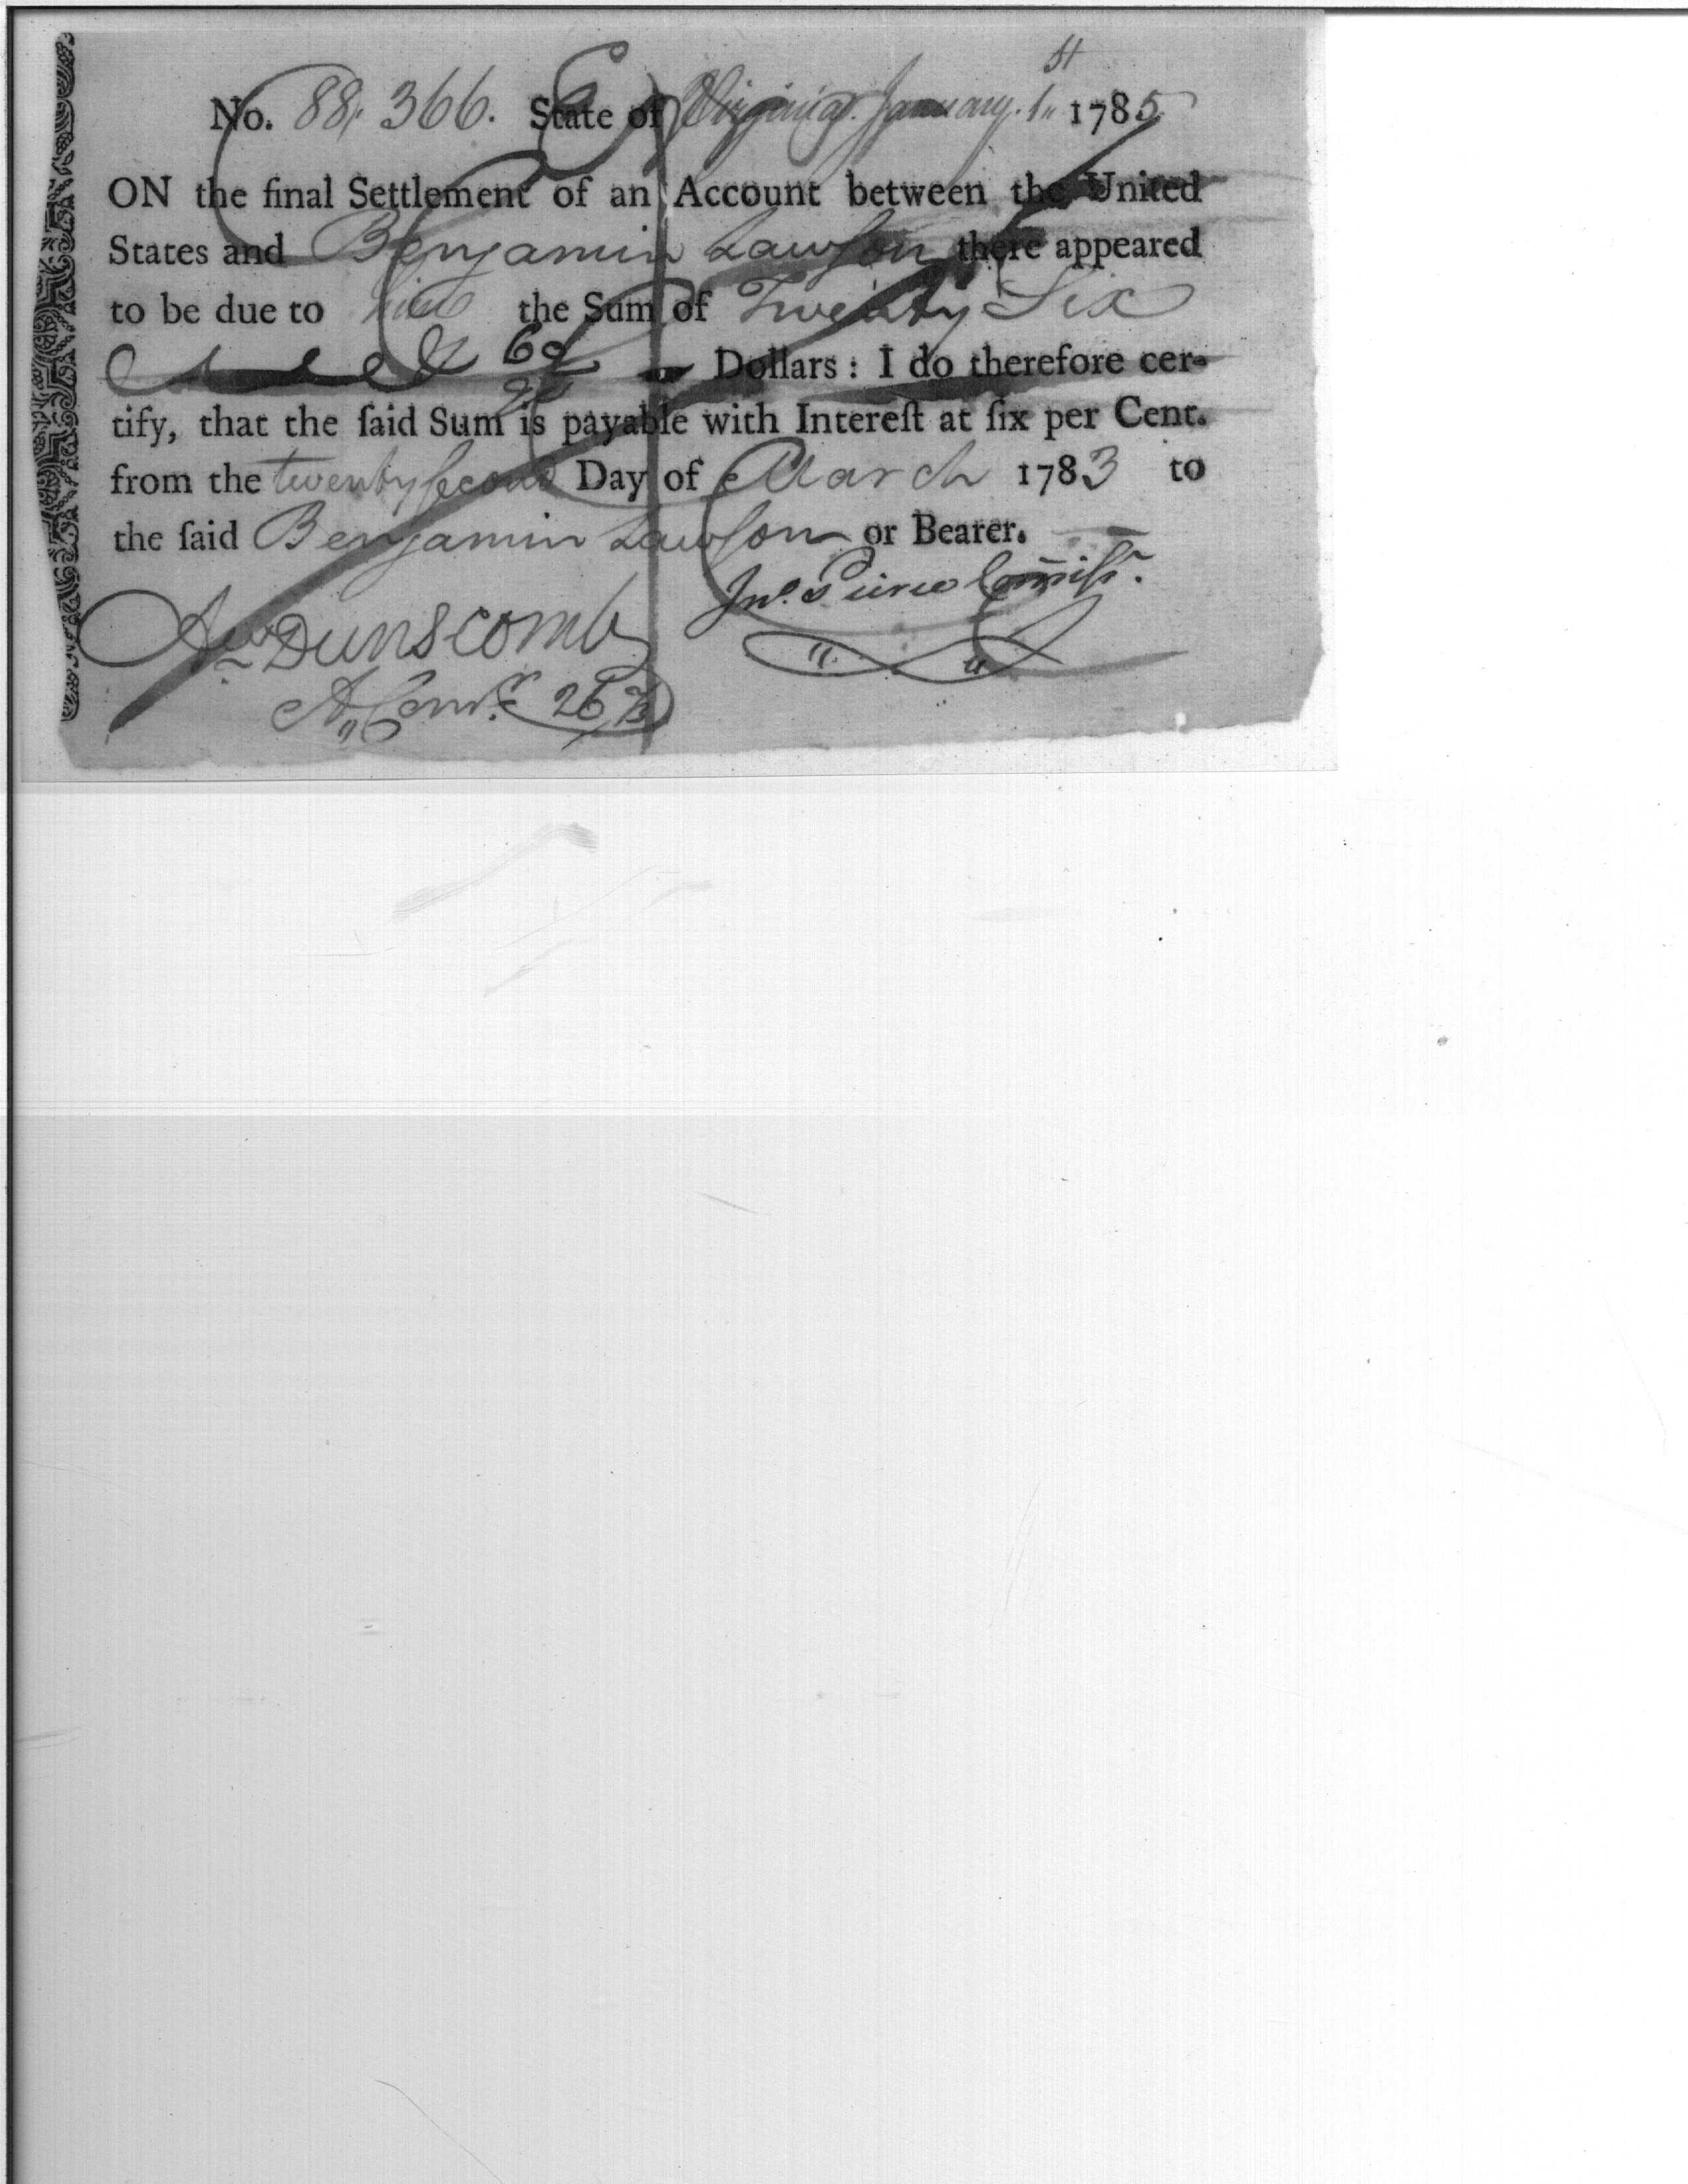 No. 88,366. State of Virginia. January. 1st 1785
ON the final Settlement of an Account between the United
States and Benjamin Lawſon there appeared
to be due to him the Sum of Twenty Six
60/90 Dollars: I do therefore cer-
tify, that the ſaid Sum is payable with Intereſt at ſix per Cent.
from the twenty ſecond Day of March 1783 to
the ſaid Benjamin Lawſon or Bearer.
Jno. Pierce Commiſsr.
Anw Dunscomb
A, Comr. 26 2/3